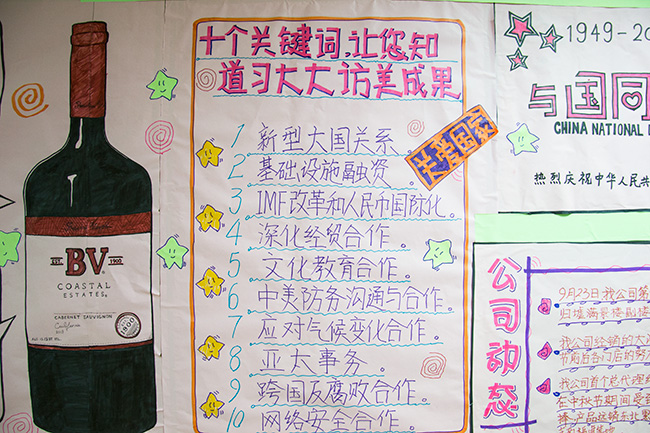 十个关键词,让您知
道习大大访美成果
关爱国家
1 新型大国关系
2 基础设施融资
3 IMF改革和人民币国际化。
4 深化经贸合作。
5 文化教育合作。
6 中美防务沟通与合作。
7 应对气候变化合作。
8 亚太事务。
9 跨国反腐败合作。
10 网络安全合作。
EST. BV 1900
COASTAL
ESTATES
CABERNET SAUVIGNON
California
1949-20
与国同
CHINA NATIONAL
热烈庆祝中华人民共
公司动态
9月23日我公司第
我公司经销的大
我公司首个总代理
在中秋节期间受